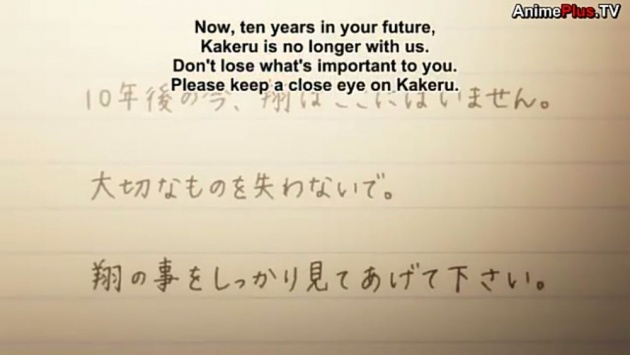 AnimePlus.TV
Now, ten years in your future,
Kakeru is no longer with us.
Don't lose what's important to you.
Please keep a close eye on Kakeru.
10年後の今、翔はここにはいません。
大切なものを失わないで。
翔の事をしっかり見てあげて下さい。